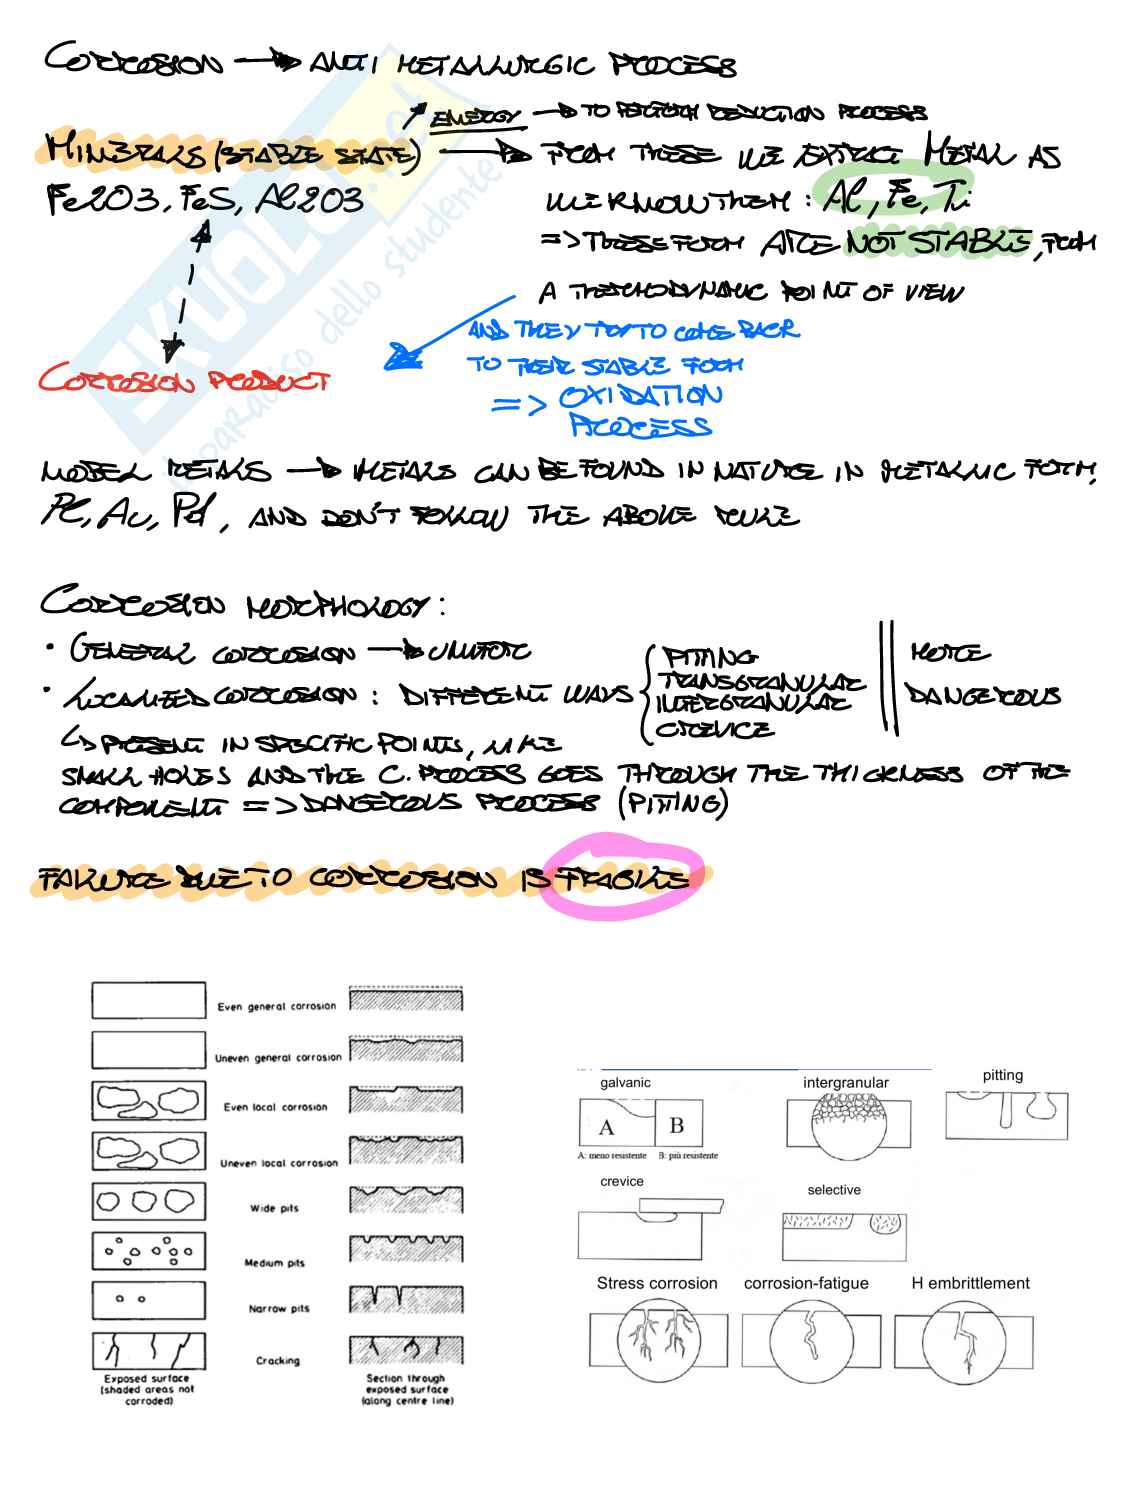 CORROSION → ANTI METALLURGIC PROCESS
ENERGY → TO PERFORM REDUCTION PROCESS
MINERALS (STABLE STATE) → FROM THESE WE EXTRACT METAL AS
Fe2O3, FeS, Al2O3 WE KNOW THEM : Al, Fe, Ti
=> THESE FORM ARE NOT STABLE, FROM
A THERMODYNAMIC POINT OF VIEW
AND THEY TRY TO COME BACK
TO THEIR STABLE FORM
CORROSION PRODUCT
=> OXIDATION
PROCESS
NOBEL METALS → METALS CAN BE FOUND IN NATURE IN METALLIC FORM,
Pt, Au, Pd, AND DON'T FOLLOW THE ABOVE RULE
CORROSION MORPHOLOGY :
• GENERAL CORROSION → UNIFORM
• LOCALIZED CORROSION : DIFFERENT WAYS
PITTING
TRANSGRANULAR
INTERGRANULAR
CREVICE
MORE
DANGEROUS
↳ PRESENT IN SPECIFIC POINTS, LIKE
SMALL HOLES AND THE C. PROCESS GOES THROUGH THE THICKNESS OF THE
COMPONENT => DANGEROUS PROCESS (PITTING)
FAILURE DUE TO CORROSION IS FRAGILE
Even general corrosion
Uneven general corrosion
Even local corrosion
Uneven local corrosion
Wide pits
Medium pits
Narrow pits
Cracking
Exposed surface
(shaded areas not
corroded)
Section through
exposed surface
(along centre line)
galvanic
intergranular
pitting
A
B
A: meno resistente B: più resistente
crevice
selective
Stress corrosion
corrosion-fatigue
H embrittlement
SKUOLA.net
il paradiso dello studente